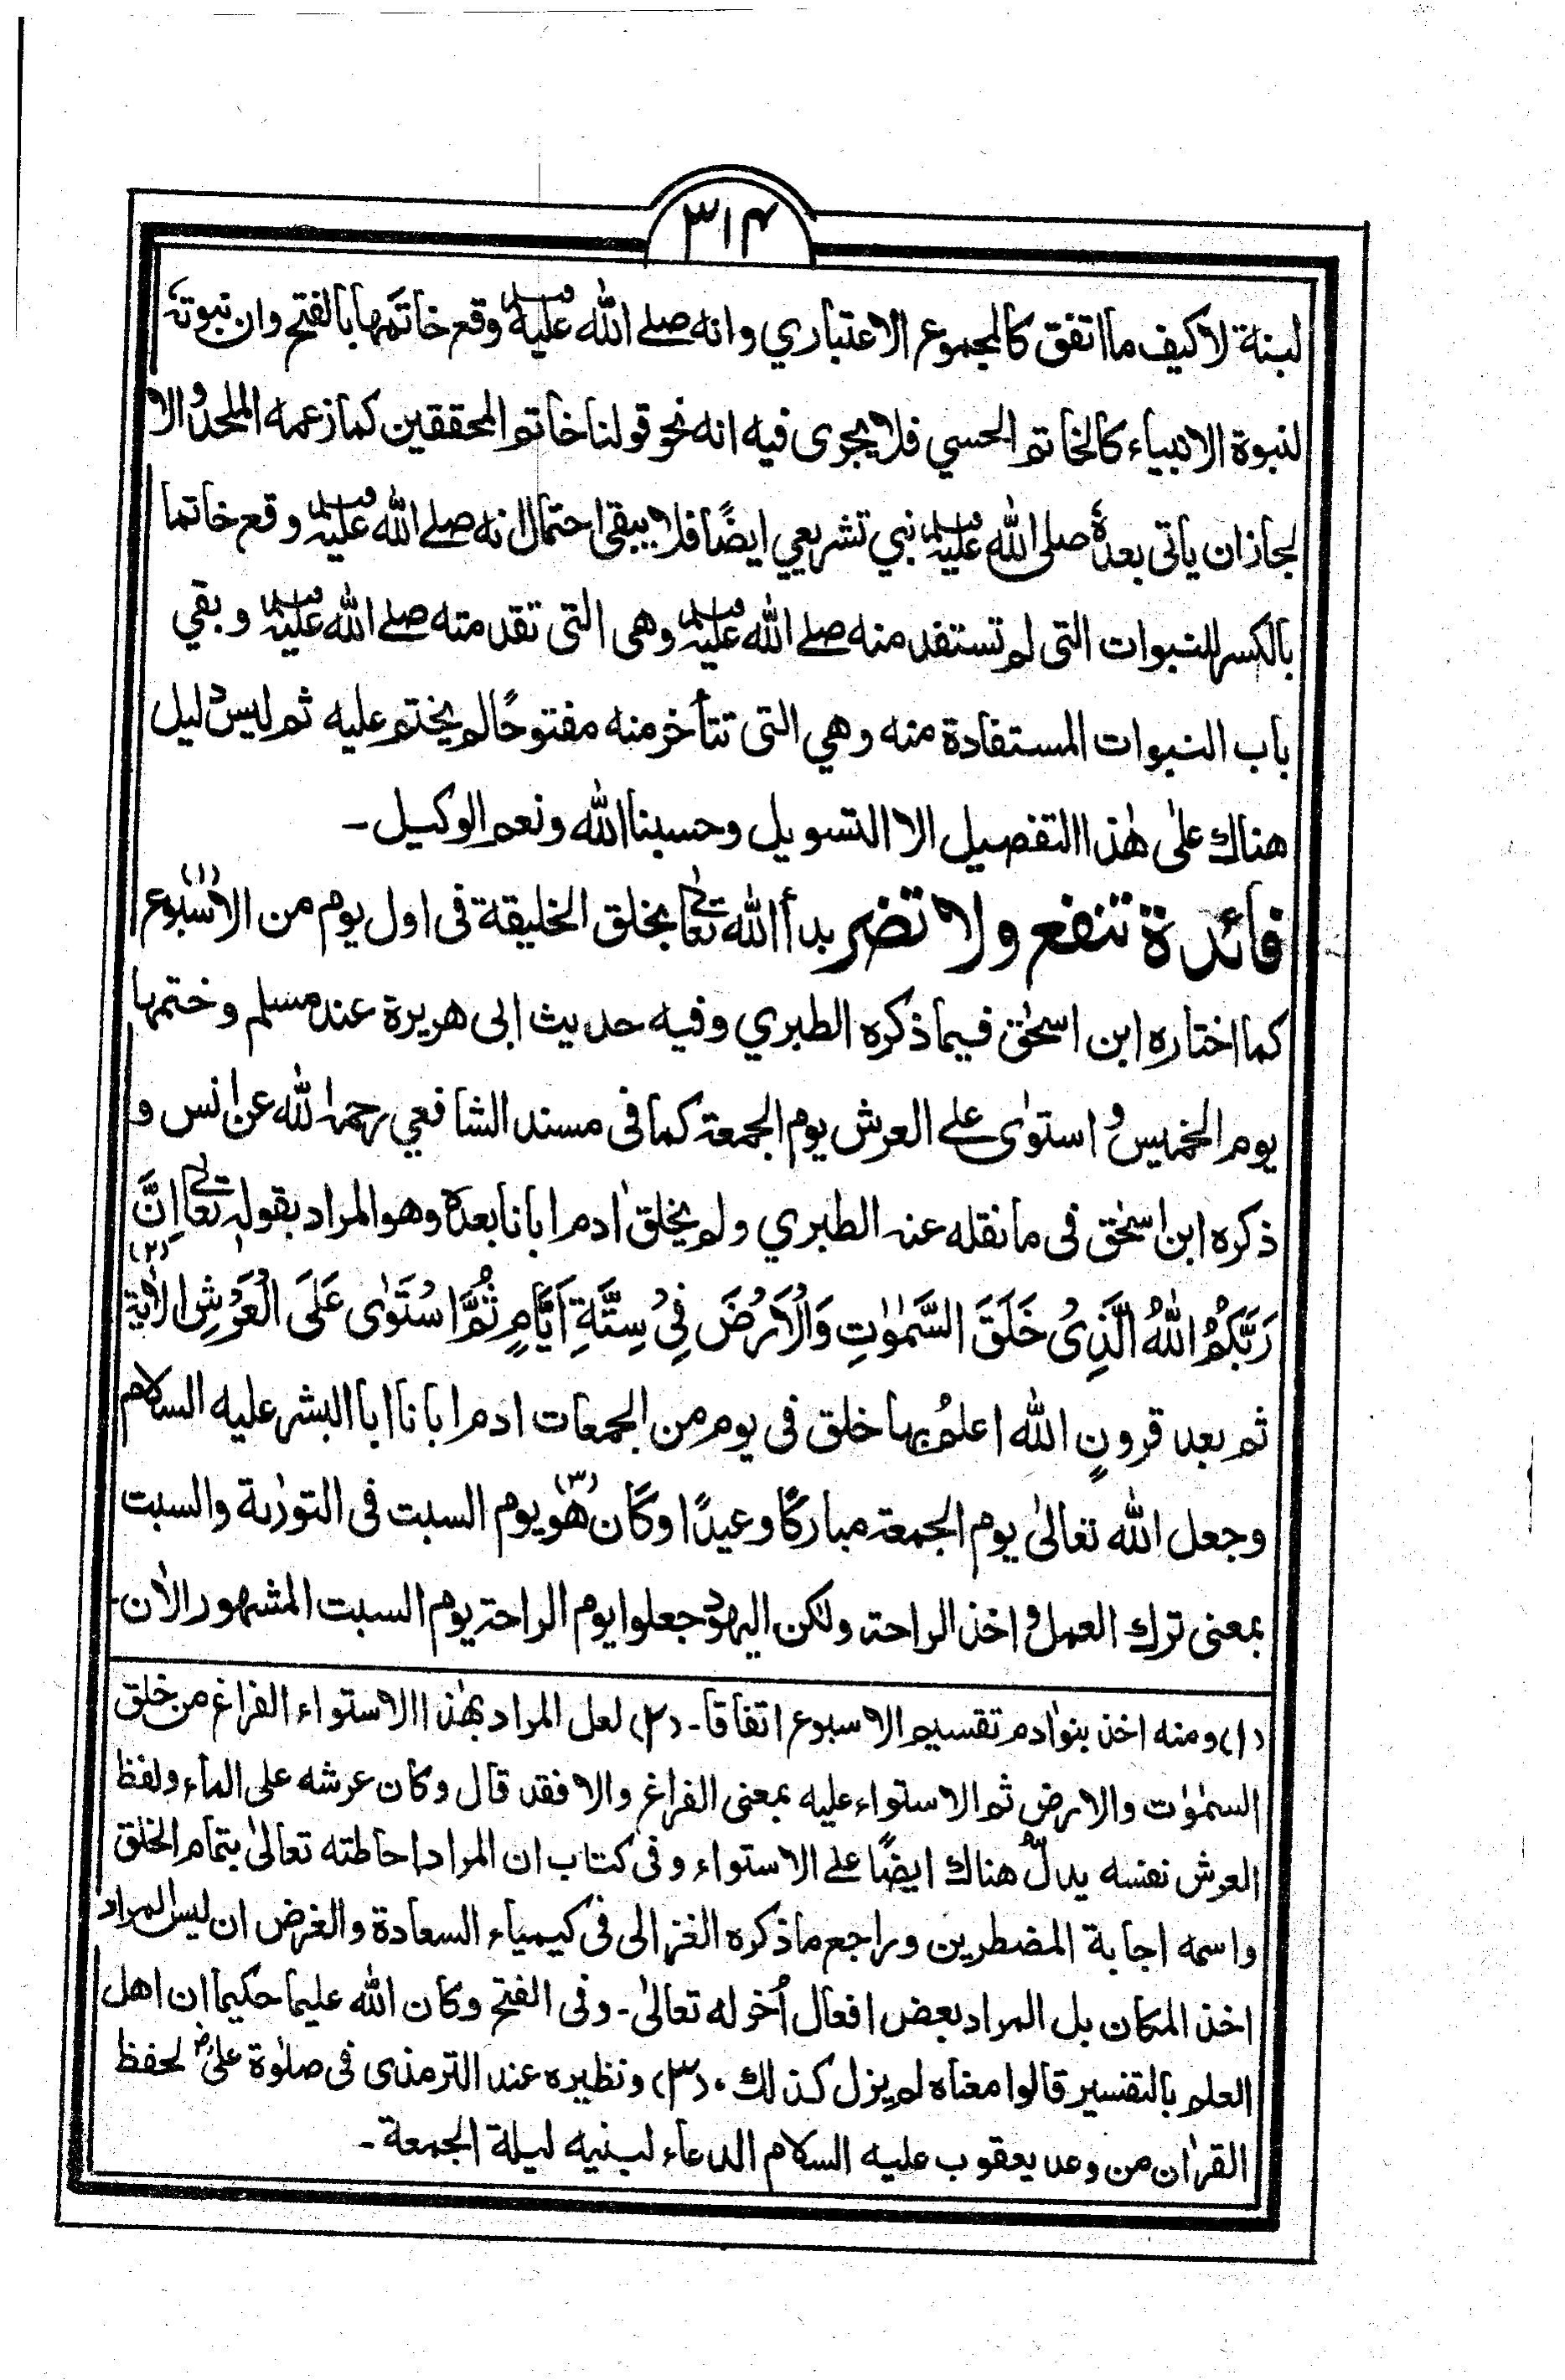 ۳۱۴
لبنة لا كيف ما اتفق كالمجموع الاعتباري وانه صلے الله عليه وسلم وقع خاتَمها بالفتح وان نبوته
لنبوة الانبياء كالخاتم الحسي فلا يجرى فيه انه نحو قولنا خاتم المحققين كما زعمه الملحد والا
لجاز ان ياتى بعدهٗ صلى الله عليه وسلم نبي تشريعي ايضًا فلا يبقى احتمال انه صلے الله عليه وسلم وقع خاتما
بالكسر للنبوات التى لم تستفد منه صلے الله عليه وسلم وهى التى تقدمته صلے الله عليه وسلم وبقي
باب النبوات المستفادة منه وهي التى تتأخر منه مفتوحًا لم يختم عليه ثم ليس دليل
هناك علٰى هٰذا التفصيل الا التسويل وحسبنا الله ونعم الوكيل ـ
فائدة تنفع ولا تضر بدأ الله تعالےٰ بخلق الخليقة فى اول يوم من الاسبوع (۱)
كما اختاره ابن اسحٰق فيما ذكره الطبري وفيه حديث ابى هريرة عند مسلم وختمها
يوم الخميس و استوٰى علے العرش يوم الجمعة كما فى مسند الشافعي رحمه الله عن انس و
ذكره ابن اسحٰق فى ما نقله عنه الطبري ولم يخلق اٰدم ابانا بعدهٗ وهو المراد بقوله تعالےٰ اِنَّ
رَبَّكُمُ اللّٰهُ الَّذِىْ خَلَقَ السَّمٰوٰتِ وَالْاَرْضَ فِىْ سِتَّةِ اَيَّامٍ ثُمَّ اسْتَوٰى عَلَى الْعَرْشِ الاٰية (۲)
ثم بعد قرونٍ الله اعلمُ بها خلق فى يوم من الجمعات ادم ابانا ابا البشر عليه السلام
وجعل الله تعالىٰ يوم الجمعة مباركًا وعيدًا وكان هُوَ (۳) يوم السبت فى التورٰىة والسبت
بمعنى ترك العمل و اخذ الراحة ولكن اليهود جعلوا يوم الراحة يوم السبت المشهور الاٰن ـ
(۱) ومنه اخذ بنو اٰدم تقسيم الاسبوع اتفاقا ـ (۲) لعل المراد بهٰذا الاستواء الفراغ من خلق
السمٰوٰت والارض ثم الاستواء عليه بمعنى الفراغ والا فقد قال وكان عرشه على الماء ولفظ
العرش نفسه يدلُّ هناك ايضًا علے الاستواء وفى كتاب ان المراد احاطته تعالىٰ بتمام الخلق
واسمه اجابة المضطرين وراجع ما ذكره الغزالى فى كيمياء السعادة والغرض ان ليس المراد
اخذ المكان بل المراد بعض افعال اُخر له تعالىٰ ـ وفى الفتح وكان الله عليما حكيما ان اهل
العلم بالتفسير قالوا معناه لم يزل كذلك ، (۳) ونظيره عند الترمذى فى صلوٰة علىؓ لحفظ
القرآن من وعد يعقوب عليه السلام الدعاء لبنيه ليلة الجمعة ـ